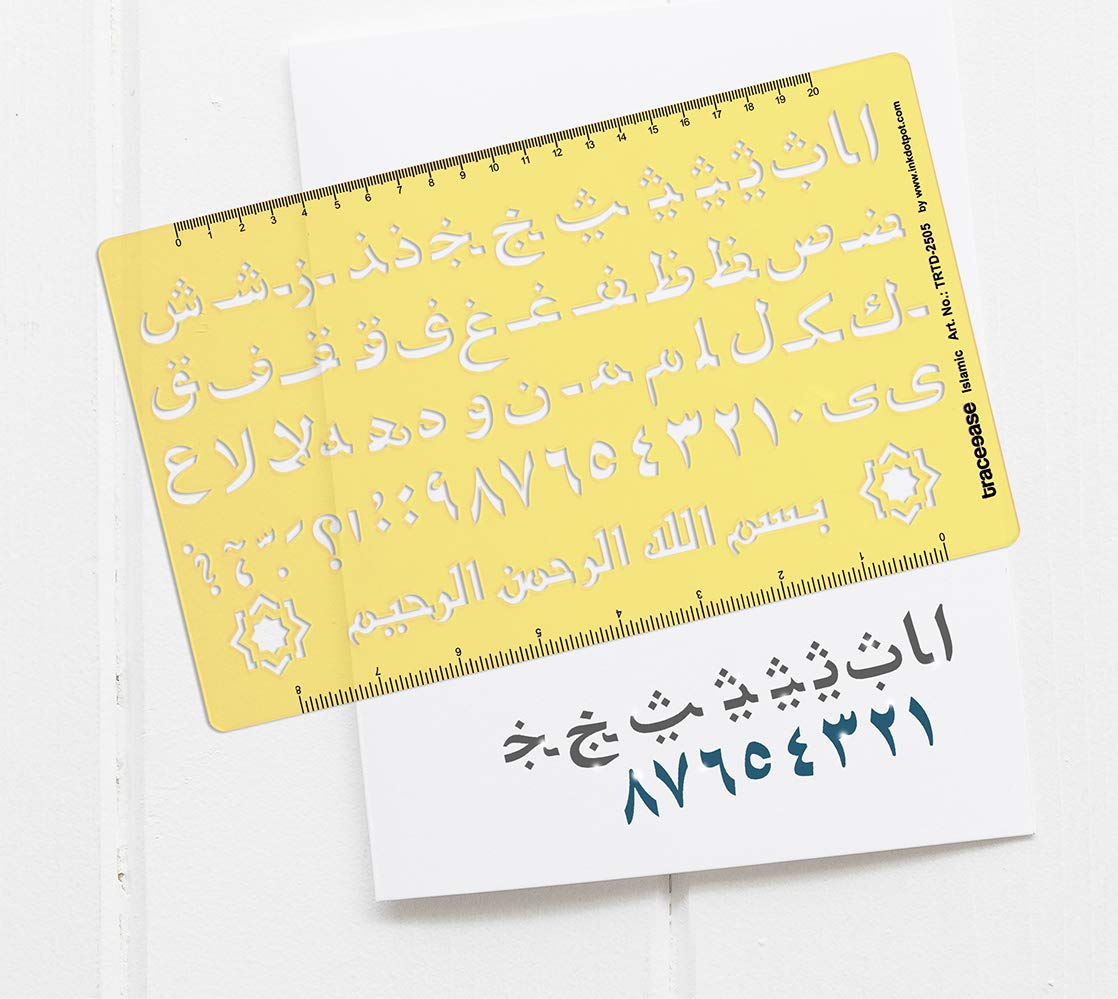 0 1 2 3 4 5 6 7 8 9 10 11 12 13 14 15 16 17 18 19 20
ا ﺎ ث ﺛ ﺜ ﺛ ﺚ خ ﺧ ذ ﺬ ز ﺷ ش
ﺿ ص ﻇ ظ ﻓ ﻏ غ ف ق ﻗ ف ق
ك ﻛ ل ا م ﻣ ن و ه ﻬ ﻼ لا ع
ى ى ٠ ١ ٢ ٣ ٤ ٥ ٦ ٧ ٨ ٩ : ! ؟
بسم الله الرحمن الرحيم
0 1 2 3 4 5 6 7 8
traceease Islamic Art. No.: TRTD-2505 by www.inkdotpot.com
ا ﺎ ث ﺛ ﺜ ﺛ ﺚ خ ﺧ
١ ٢ ٣ ٤ ٥ ٦ ٧ ٨